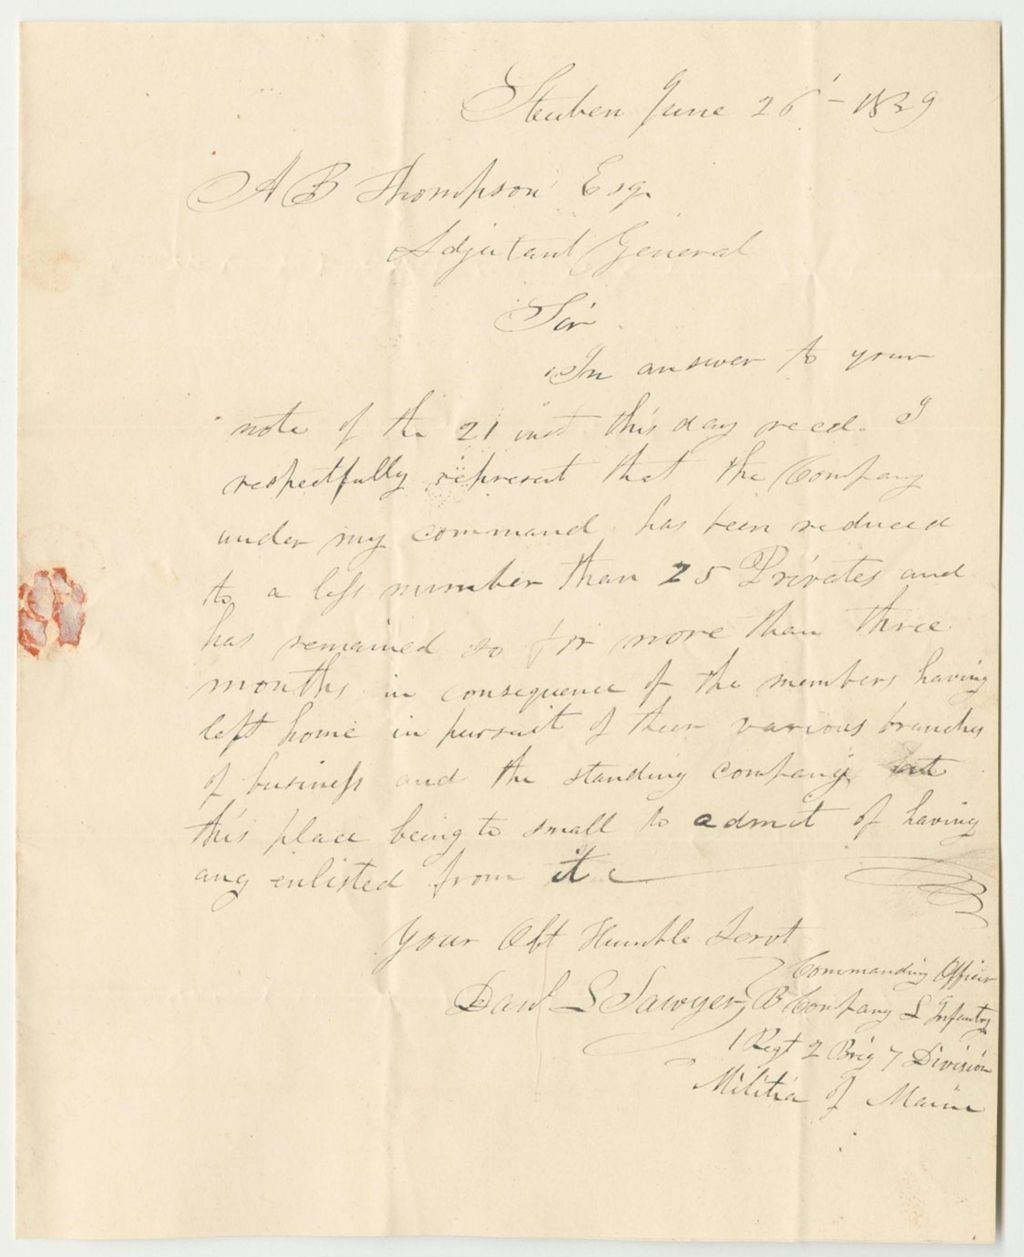 Steuben June 26 - 1839
A B Thompson Esq.
Adjutant General
Sir
In answer to your
note of the 21 inst this day reced. I
respectfully represent that the Company
under my command has been reduced
to a less number than 25 Privates and
has remained so for more than three
months in consequence of the members having
left home in pursuit of their various branches
of business and the standing company at
this place being to small to admit of having
any enlisted from it
Your Obt Humble Servt
Danl L Sawyer
Commanding Officer
B Company L Infantry
1 Regt 2 Brig 7 Division
Militia of Maine